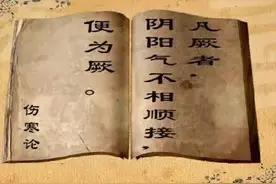 凡厥者，
阴阳气不相顺接，
便为厥。
伤寒论